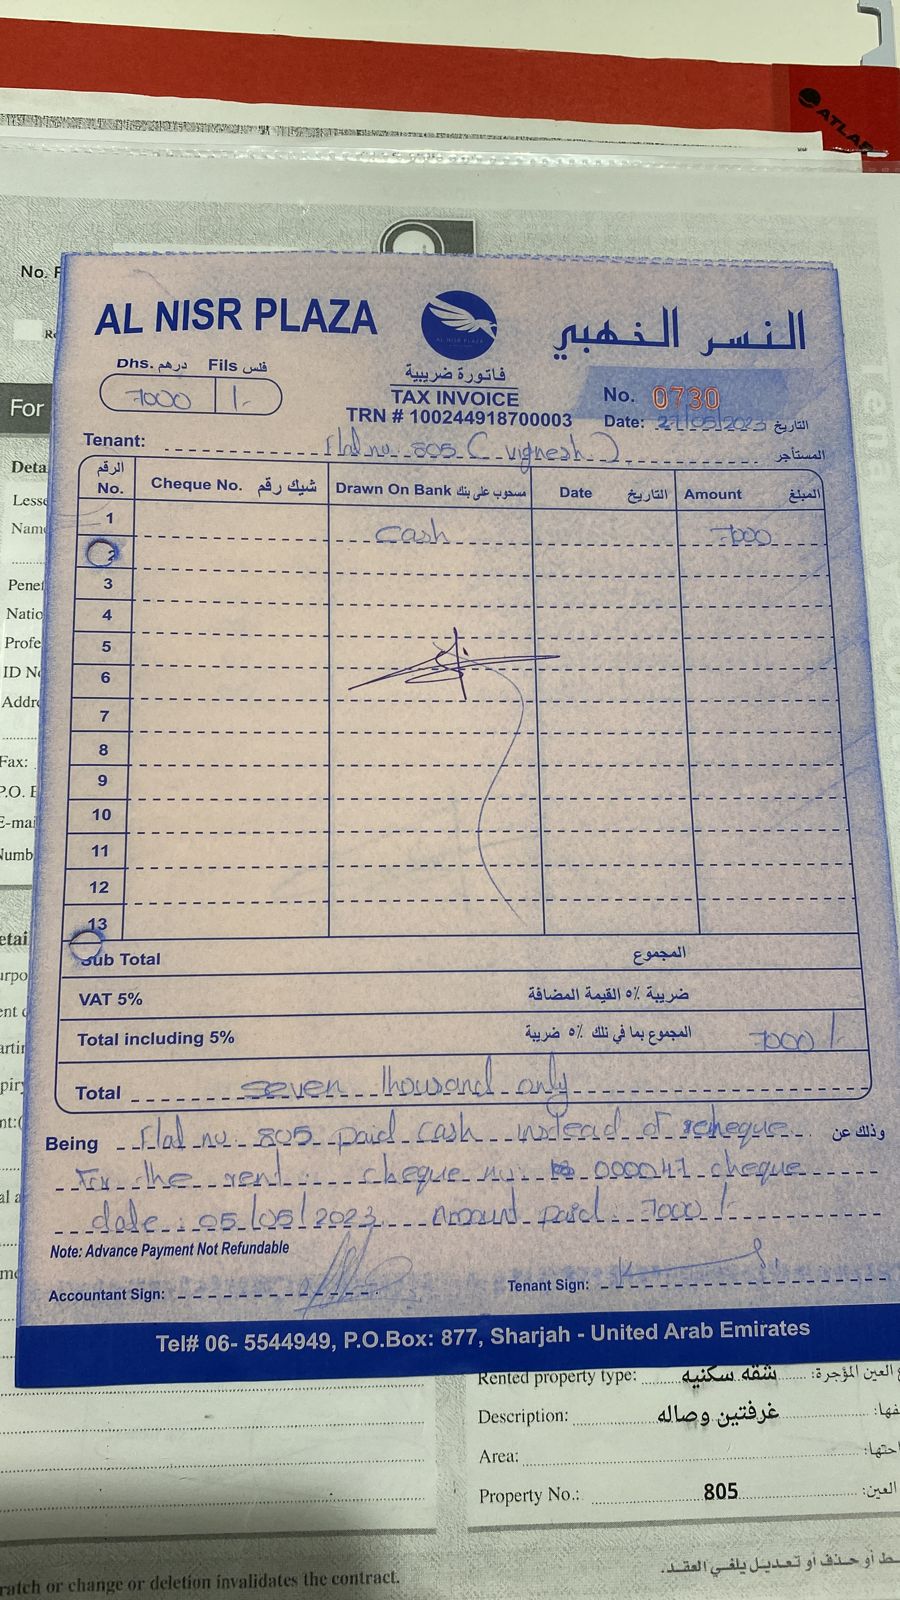 ATLAS
No. F
AL NISR PLAZA
النسر الذهبي
AL NISR PLAZA
Dhs. درهم Fils فلس
7000 /-
فاتورة ضريبية
TAX INVOICE
TRN # 100244918700003
No. 0730
Date: 27/05/2023 التاريخ
Tenant: Flat no 805 ( vignesh ) المستأجر
الرقم No. Cheque No. شيك رقم Drawn On Bank مسحوب على بنك Date التاريخ Amount المبلغ
1 Cash 7000
2
3
4
5
6
7
8
9
10
11
12
13
Sub Total المجموع
VAT 5% ضريبة ٥٪ القيمة المضافة
Total including 5% المجموع بما في تلك ٥٪ ضريبة 7000 /-
Total seven thousand only
Being Flat no 805 paid cash instead of cheque وذلك عن
For the rent : cheque no: 000047 cheque
date : 05/05/2023 Amount paid : 7000 /-
Note: Advance Payment Not Refundable
Accountant Sign: Tenant Sign:
Tel# 06- 5544949, P.O.Box: 877, Sharjah - United Arab Emirates
For
Name
ID No
Fax:
Rented property type: شقه سكنيه العين المؤجرة:
Description: غرفتين وصاله
Area:
Property No.: 805 العين:
ratch or change or deletion invalidates the contract.
أو حذف أو تعديل يلغي العقد.